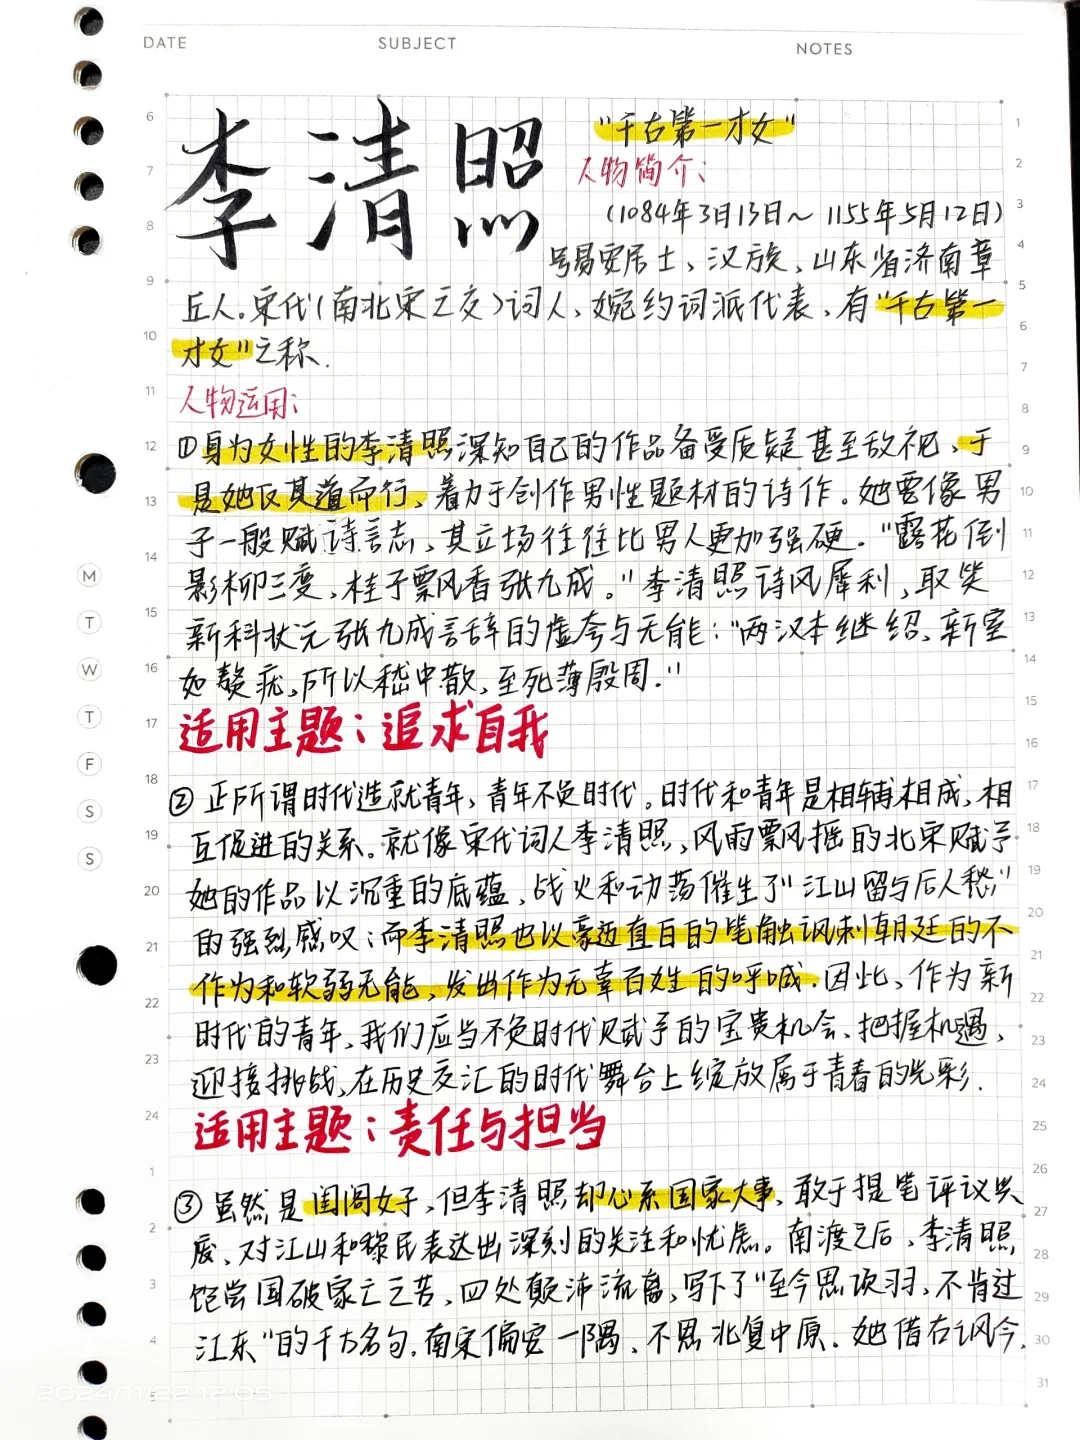 DATE SUBJECT NOTES
李清照
"千古第一才女"
人物简介:
(1084年3月13日~1155年5月12日)
号易安居士、汉族、山东省济南章
丘人。宋代(南北宋之交)词人、婉约词派代表、有"千古第一
才女"之称.
人物运用:
①身为女性的李清照深知自己的作品备受质疑甚至敌视、于
是她反其道而行、着力于创作男性题材的诗作。她要像男
子一般赋诗言志、其立场往往比男人更加强硬。"露花倒
影柳三变、桂子飘香张九成。"李清照诗风犀利、取笑
新科状元张九成言辞的虚夸与无能:"两汉本继绍、新室
如赘疣、所以嵇中散、至死薄殷周."
适用主题:追求自我
②正所谓时代造就青年、青年不负时代。时代和青年是相辅相成、相
互促进的关系。就像宋代词人李清照、风雨飘摇的北宋赋予
她的作品以沉重的底蕴、战火和动荡催生了"江山留与后人愁"
的强烈感叹;而李清照也以豪迈直白的笔触讽刺朝廷的不
作为和软弱无能、发出作为无辜百姓的呼喊.因此、作为新
时代的青年、我们应当不负时代赋予的宝贵机会、把握机遇、
迎接挑战、在历史交汇的时代舞台上绽放属于青春的光彩.
适用主题:责任与担当
③虽然是闺阁女子、但李清照却心系国家大事、敢于提笔评议兴
废、对江山和黎民表达出深刻的关注和忧虑。南渡之后、李清照
饱尝国破家亡之苦、四处颠沛流离、写下了"至今思项羽、不肯过
江东"的千古名句.南宋偏安一隅、不思北复中原.她借古讽今、
M
T
W
T
F
S
S
6
7
8
9
10
11
12
13
14
15
16
17
18
19
20
21
22
23
24
1
2
3
4
5
1
2
3
4
5
6
7
8
9
10
11
12
13
14
15
16
17
18
19
20
21
22
23
24
25
26
27
28
29
30
31
2024/11/22 12:05